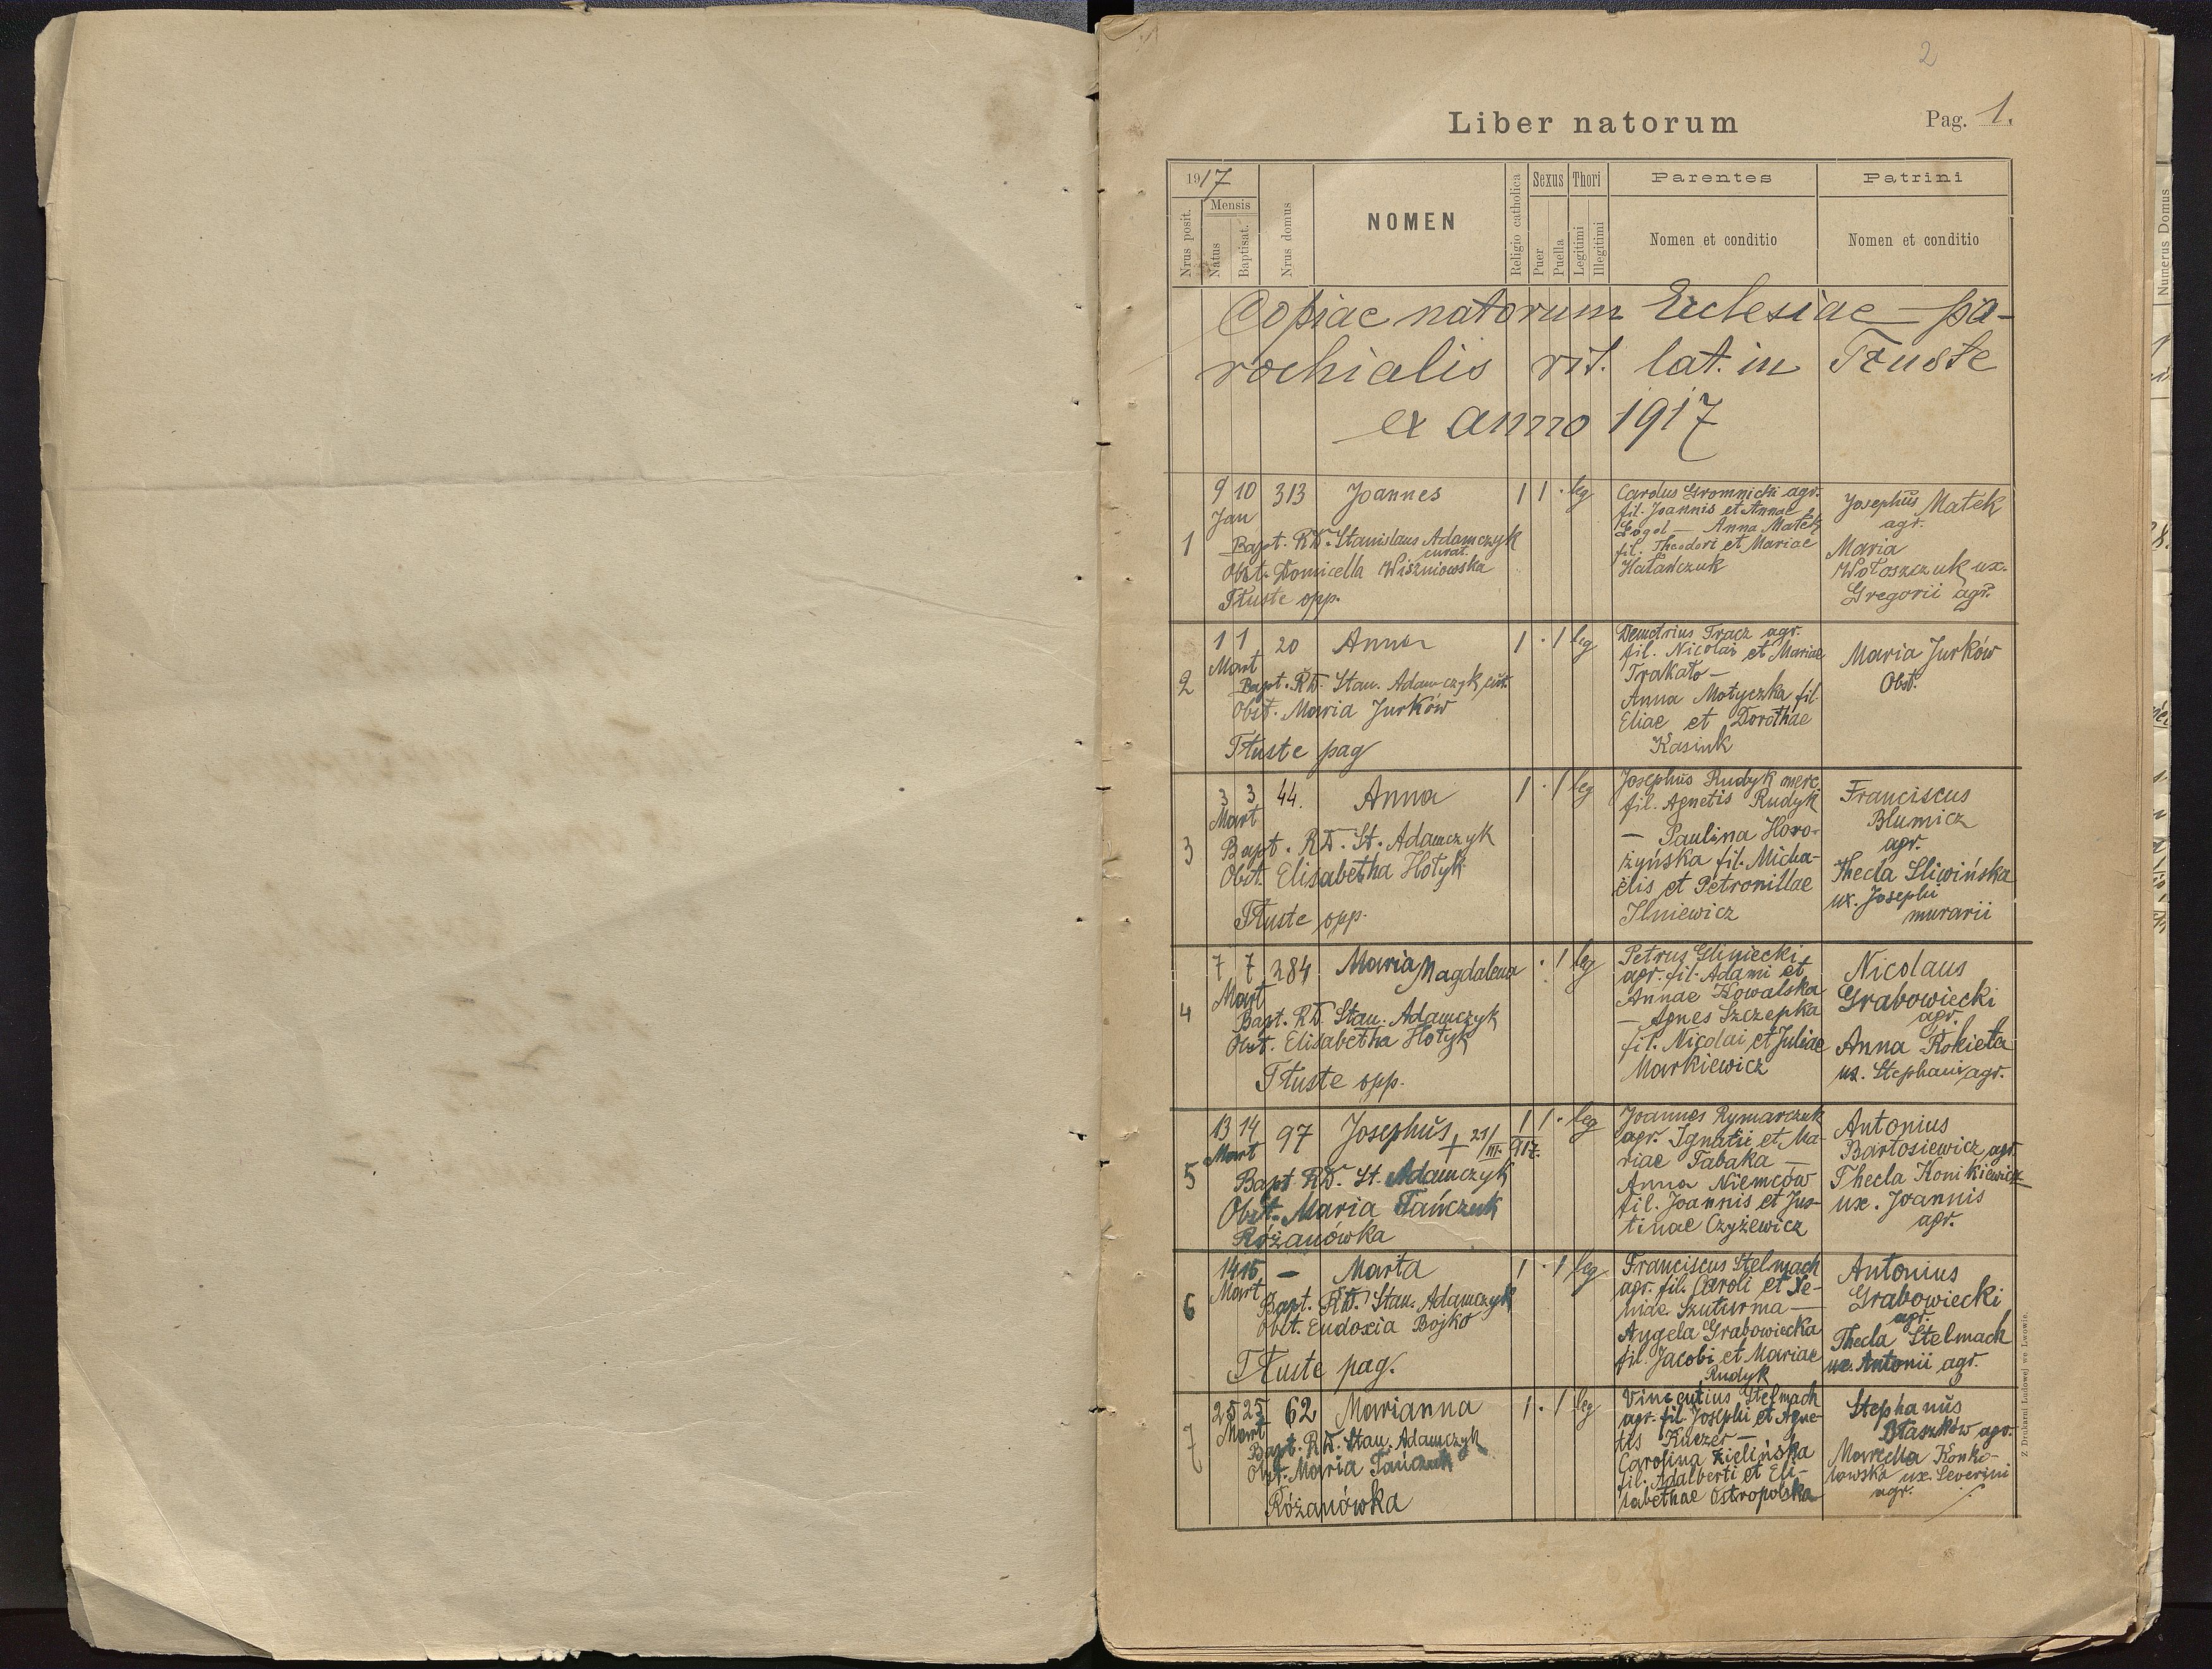 2
Liber natorum
Pag. 1.
1917
Nrus posit.
Mensis
Natus
Baptisat.
Nrus domus
NOMEN
Religio catholica
Sexus
Puer
Puella
Thori
Legitimi
Illegitimi
Parentes
Nomen et conditio
Patrini
Nomen et conditio
Copiae natorum Ecclesiae pa-
rochialis rit. lat. in Tłuste
ex anno 1917
1
9 10 313 Joannes 1 1 · leg
Jan
Bapt. RD. Stanislaus Adamczyk
curat.
Obst. Domicella Wiszniowska
Tłuste opp.
Carolus Gromnicki agr.
fil. Joannis et Annae
Gogol — Anna Matek
fil. Theodori et Mariae
Hatańczuk
Josephus Matek
agr.
Maria
Wołoszczuk ux.
Gregorii agr.
2
1 1 20 Anna 1 · 1 leg
Mart
Bapt. RD. Stan. Adamczyk cur.
Obst. Maria Jurków
Tłuste pag
Demetrius Tracz agr.
fil. Nicolai et Mariae
Trakało —
Anna Motyczka fil.
Eliae et Dorothae
Kasiuk
Maria Jurków
Obst.
3
3 3 44. Anna 1 · 1 leg
Mart
Bapt. RD. St. Adamczyk
Obst. Elisabetha Hołyk
Tłuste opp.
Josephus Rudyk merc.
fil. Agnetis Rudyk
— Paulina Horo-
żyńska fil. Micha-
elis et Petronillae
Ilniewicz
Franciscus
Blumicz
agr.
Thecla Sliwińska
ux. Josephi
murarii
4
7 7 284 Maria Magdalena · 1 leg
Mart
Bapt. RD. Stan. Adamczyk
Obst. Elisabetha Hołyk
Tłuste opp.
Petrus Gliniecki
agr. fil. Adami et
Annae Kowalska
— Agnes Szczepka
fil. Nicolai et Juliae
Markiewicz
Nicolaus
Grabowiecki
agr.
Anna Rokieta
ux. Stephani agr.
5
13 14 97 Josephus + 21/III. 917. 1 1 · leg
Mart
Bapt. RD. St. Adamczyk
Obst. Maria Tańczuk
Różanówka
Joannes Rymarczuk
agr. Ignatii et Ma-
riae Tabaka —
Anna Niemców
fil. Joannis et Jus-
tinae Czyżewicz
Antonius
Bartosiewicz agr.
Thecla Konikiewicz
ux. Joannis
agr.
6
14 15 — Marta 1 · 1 leg
Mart
Bapt. RD. Stan. Adamczyk
Obst. Eudoxia Bojko
Tłuste pag.
Franciscus Stelmach
agr. fil. Caroli et Xe-
niae Szuturma —
Angela Grabowiecka
fil. Jacobi et Mariae
Rudyk
Antonius
Grabowiecki
agr.
Thecla Stelmach
ux. Antonii agr.
7
25 25 62 Marianna 1 · 1 leg
Mart
Bapt. RD. Stan. Adamczyk
Obst. Maria Tańczuk
Różanówka
Vincentius Stelmach
agr. fil. Josephi et Agne-
tis Kuczer —
Carolina Zielińska
fil. Adalberti et Eli-
sabethae Ostropolska
Stephanus
Błaszków agr.
Marcella Konko-
lowska ux. Severini
agr.
Z Drukarni Ludowej we Lwowie.
Numerus Domus